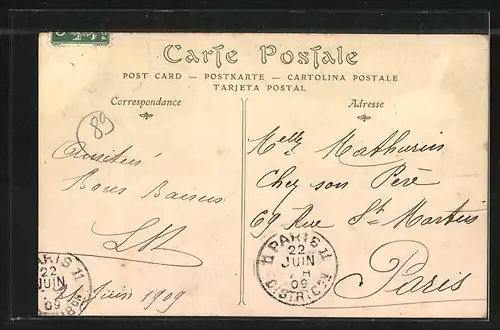 Carte Postale
POST CARD — POSTKARTE — CARTOLINA POSTALE
TARJETA POSTAL
Correspondance
Adresse
89
Amitiés
Bons Baisers
Juin 1909
Melle Mathurin
Chez son Père
69 Rue St Martin
Paris
PARIS 11
22
JUIN
09
11 PARIS 11
22
JUIN
09
DISTRIBON